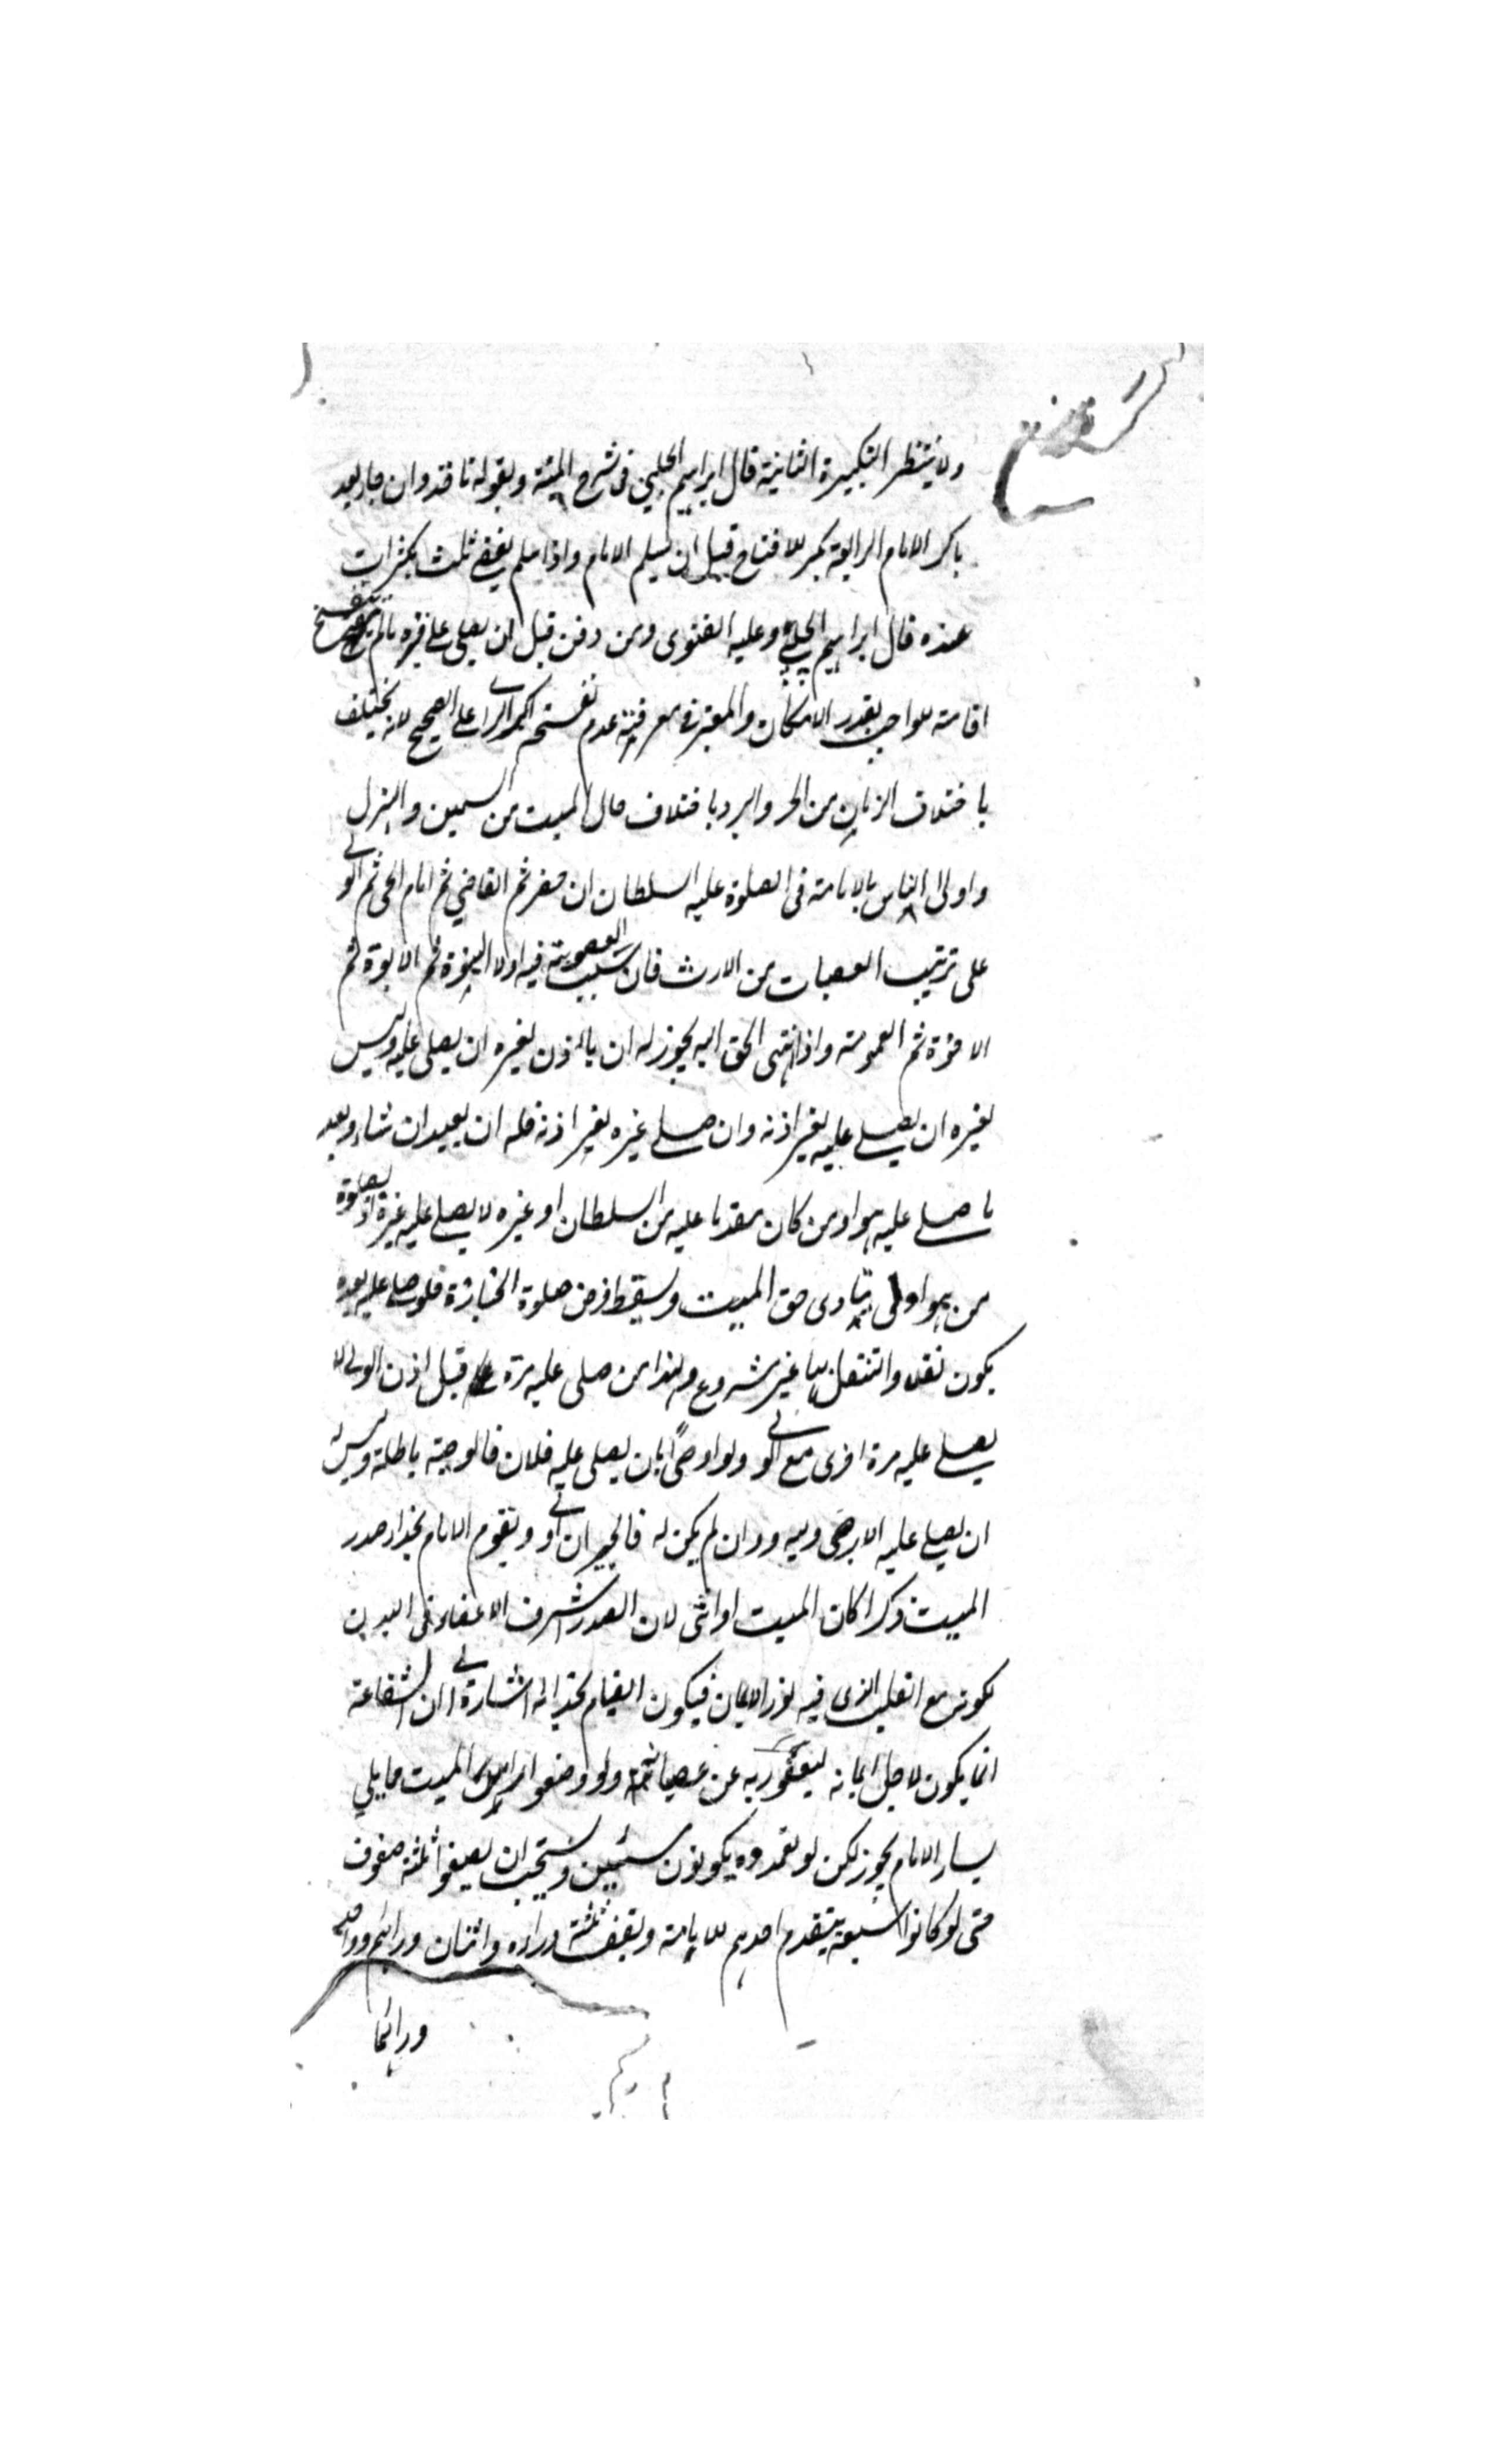 ولا ينتظر التكبيرة الثانية قال ابراهيم الحلبي في شرح المنية وبقوله ناخذ وان جاء بعد
ما كبر الامام الرابعة كبر للافتتاح قبل ان يسلم الامام واذا سلم يقضي ثلث تكبيرات
عنده قال ابراهيم الحلبي وعليه الفتوى ومن دفن قبل ان يصلى على قبره ما لم يتفسخ
اقامة للواجب بقدر الامكان والمعتبر في معرفة عدم تفسخه اكبر الراي على الصحيح لانه يختلف
باختلاف الزمان من الحر والبرد باختلاف حال الميت من السمين والهزل
واولى الناس بالامامة في الصلوة عليه السلطان ان حضر ثم القاضي ثم امام الحي ثم الولي
على ترتيب العصبات من الارث فان سبب العصوبة فيه اولا البنوة ثم الابوة ثم
الاخوة ثم العمومة واذا انتهى الحق اليه يجوز له ان ياذن لغيره ان يصلى عليه وليس
لغيره ان يصلى عليه بغير اذنه وان صلى غيره بغير اذنه فله ان يعيد ان شاء وبعد
ما صلى عليه هو او من كان مقدما عليه من السلطان او غيره لا يصلى عليه غيره اذ بصلوة
من هو اولى يتادى حق الميت ويسقط فرض صلوة الجنازة فلو صلى عليه بعده
يكون نفلا والتنفل بها غير مشروع ولهذا من صلى عليه مرة قبل اذن الولي لا
يصلى عليه مرة اخرى مع الولي ولو اوصى بان يصلى عليه فلان فالوصية باطلة وليس له
ان يصلى عليه الا برضى وليه وان لم يكن له فالجيران اولى ويقوم الامام بحذاء صدر
الميت ذكرا كان الميت او انثى لان الصدر اشرف الاعضاء في البدن
لكونه مع القلب الذي فيه نور الايمان فيكون القيام بحذائه اشارة الى ان الشفاعة
انما يكون لاجل ايمانه ليعفو ربه عن عصيانه ولو وضعوا راس الميت مما يلي
يسار الامام يجوز لكن لو تعمدوه يكونون مسيئين ويستحب ان يصفوا ثلثة صفوف
حتى لو كانوا سبعة يتقدم احدهم للامامة ويقف ثلثة وراءه واثنان ورائهم وواحد
ورائهما